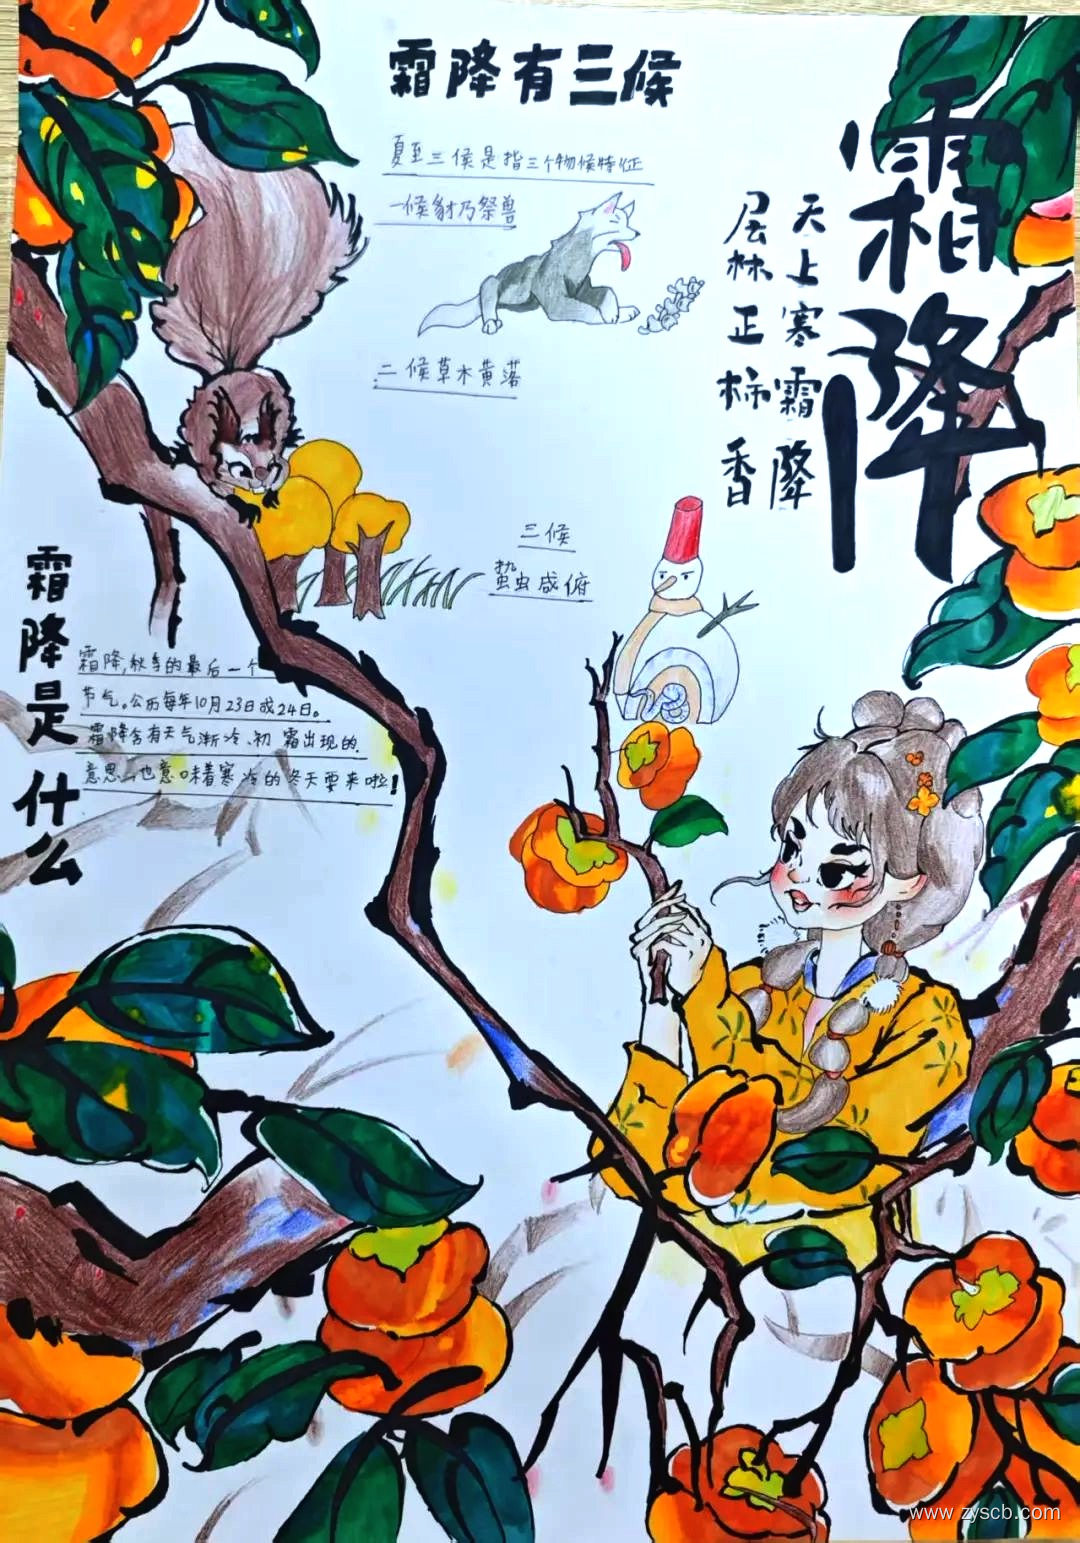 霜降有三候
夏至三候是指三个物候特征
一候豺乃祭兽
二候草木黄落
三候
蛰虫咸俯
霜降
天上寒霜降
层林正柿香
霜降是什么
霜降,秋季的最后一个
节气。公历每年10月23日或24日。
霜降含有天气渐冷、初霜出现的
意思,也意味着寒冷的冬天要来啦!
www.zyscb.com